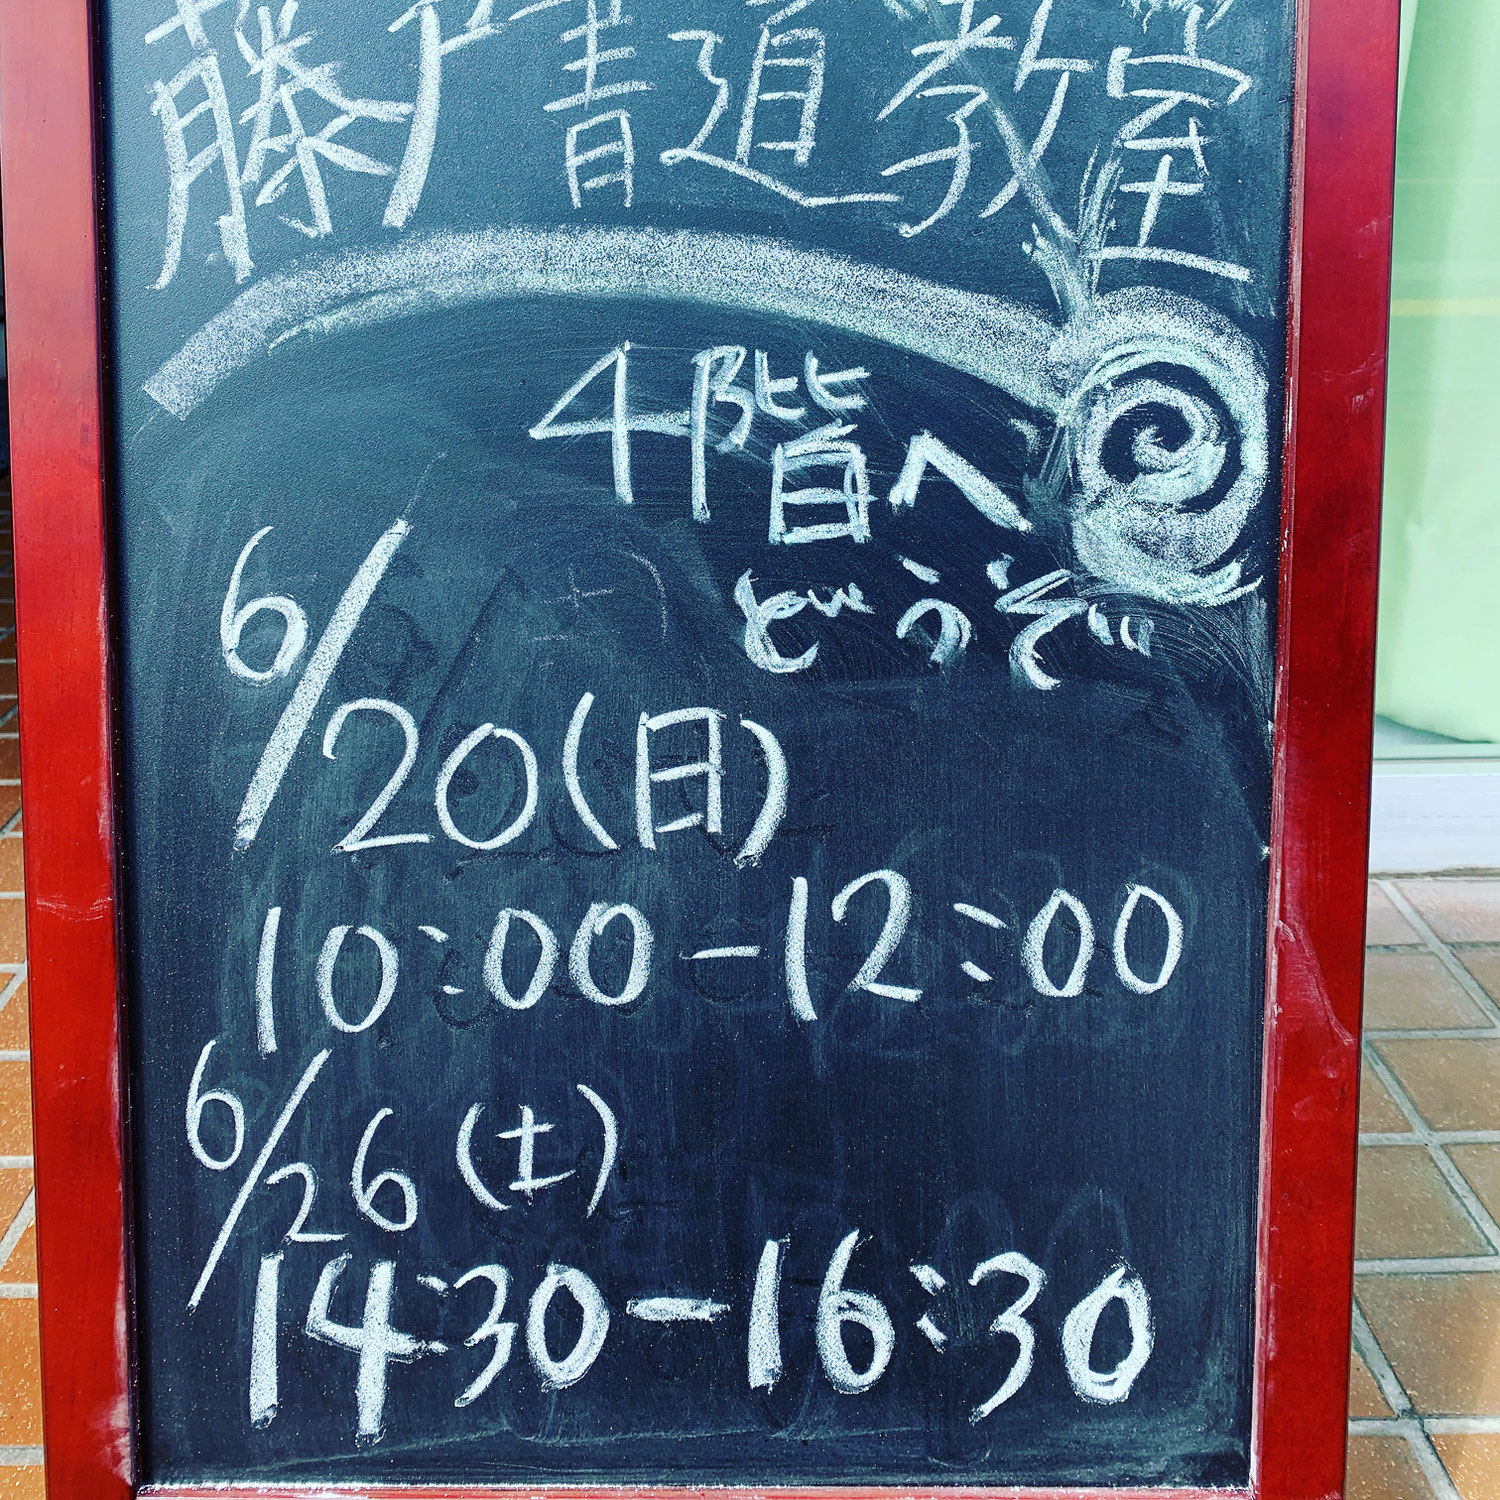 藤戸書道教室
4階へ
どうぞ
6/20(日)
10:00-12:00
6/26(土)
14:30-16:30